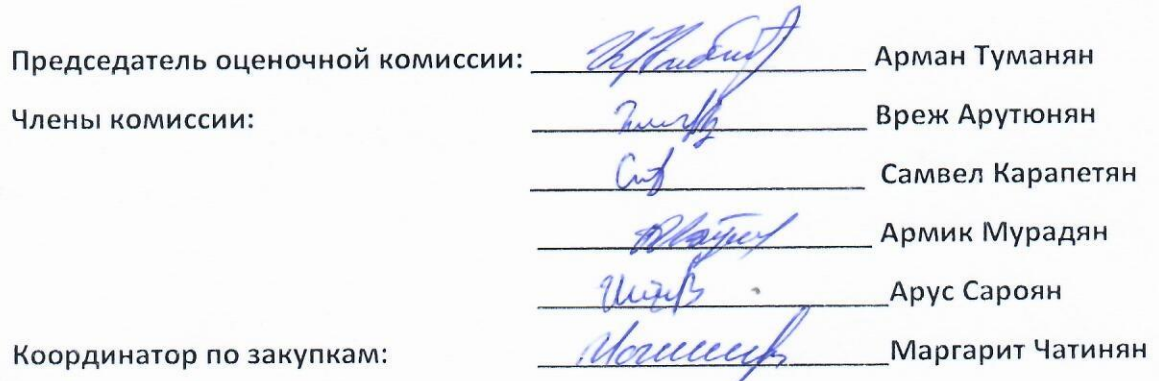 Председатель оценочной комиссии: Арман Туманян
Члены комиссии: Вреж Арутюнян
Самвел Карапетян
Армик Мурадян
Арус Сароян
Координатор по закупкам: Маргарит Чатинян